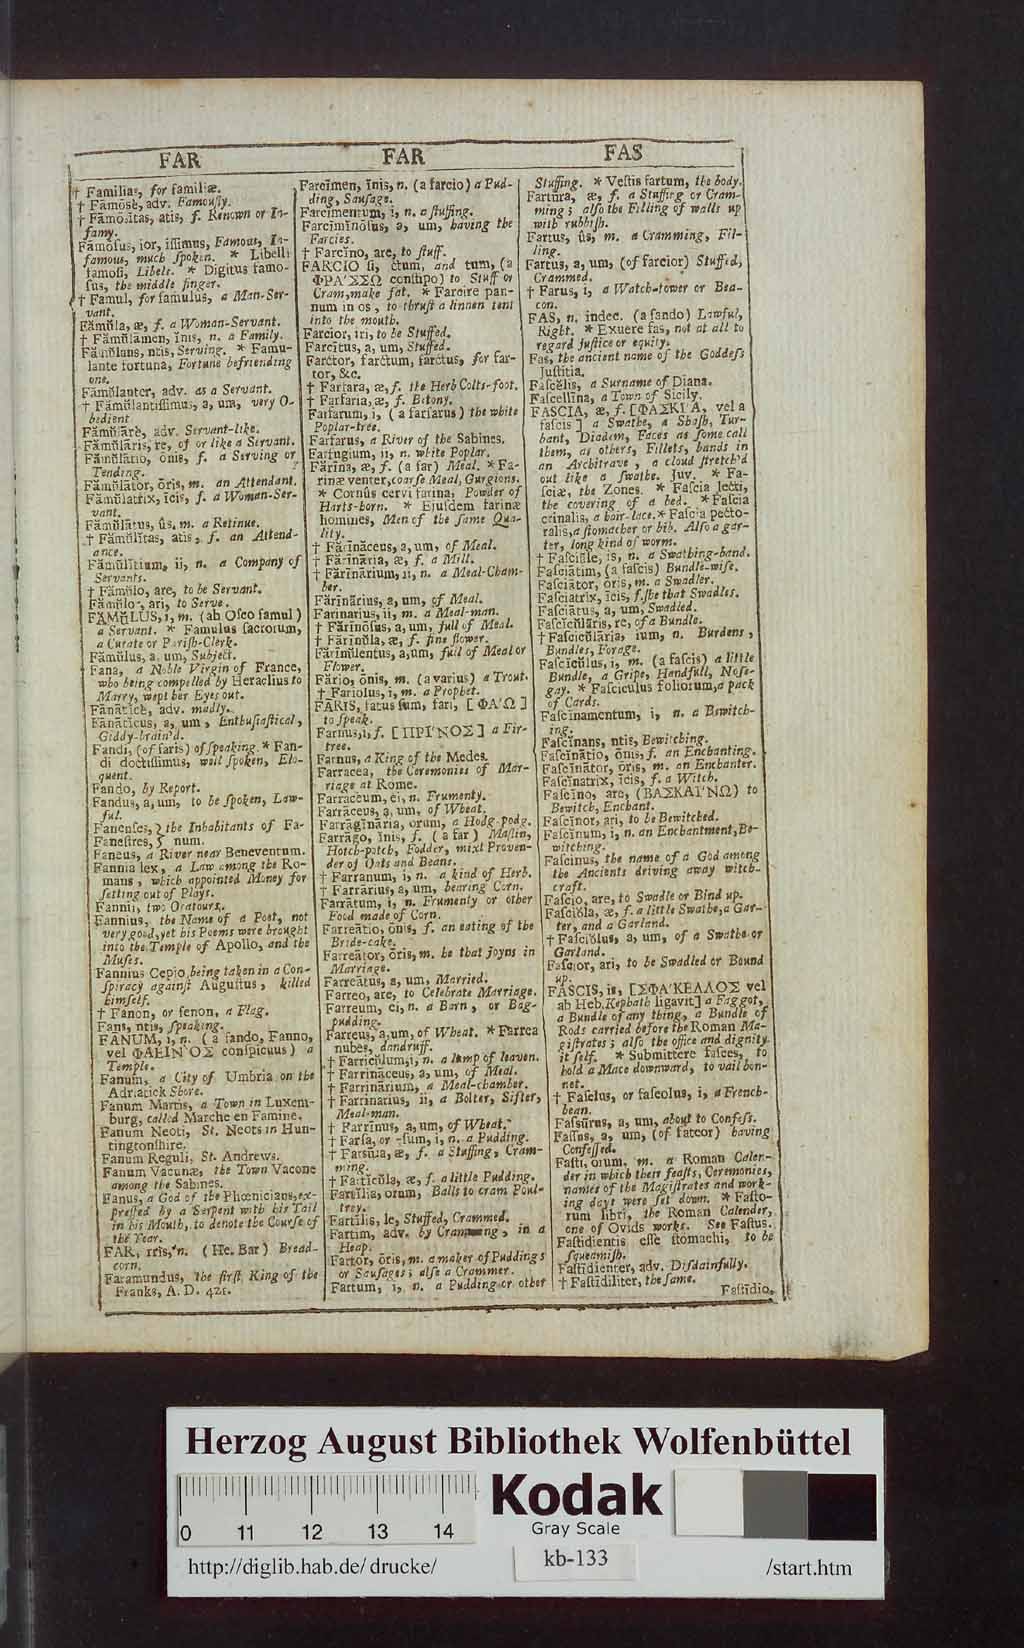 FAR
† Familias, for familiæ.
† Fāmōsè, adv. Famously.
† Fāmōsĭtas, atis, f. Renown or In-
famy.
Fāmōſus, ior, iſſimus, Famous, In-
famous, much ſpoken. * Libelli
famoſi, Libels. * Digitus famo-
ſus, the middle finger.
† Famul, for famulus, a Man-Ser-
vant.
Fămŭla, æ, f. a Woman-Servant.
† Fămŭlamen, ĭnis, n. a Family.
Fămŭlans, ntis, Serving. * Famu-
lante fortuna, Fortune befriending
one.
Fămŭlanter, adv. as a Servant.
† Fămŭlantiſſimus, a, um, very O-
bedient.
Fămŭlārè, adv. Servant-like.
Fămŭlāris, re, of or like a Servant.
Fămŭlātio, ōnis, f. a Serving or
Tending.
Fămŭlātor, ōris, m. an Attendant.
Fămŭlatrix, īcis, f. a Woman-Ser-
vant.
Fămŭlātus, ûs, m. a Retinue.
† Fămŭlĭtas, atis, f. an Attend-
ance.
Fămŭlĭtium, ii, n. a Company of
Servants.
† Fămŭlo, are, to be Servant.
Fămŭlor, ari, to Serve.
FAMŬLUS, i, m. (ab Oſco famul)
a Servant. * Famulus ſacrorum,
a Curate or Pariſh-Clerk.
Fămŭlus, a, um, Subject.
† Fana, a Noble Virgin of France,
who being compelled by Heraclius to
Marry, wept her Eyes out.
Fānātĭcè, adv. madly.
Fānātĭcus, a, um, Enthuſiaſtical,
Giddy-brain'd.
Fandi, (of faris) of ſpeaking. * Fan-
di doctiſſimus, well ſpoken, Elo-
quent.
Fando, by Report.
Fandus, a, um, to be ſpoken, Law-
ful.
Fanenſes, } the Inhabitants of Fa-
Faneſtres, } num.
Faneus, a River near Beneventum.
Fannia lex, a Law among the Ro-
mans, which appointed Money for
ſetting out of Plays.
Fannii, two Oratours.
Fannius, the Name of a Poet, not
very good, yet his Poems were brought
into the Temple of Apollo, and the
Muſes.
Fannius Cepio being taken in a Con-
ſpiracy againſt Auguſtus, killed
himſelf.
† Fanon, or fenon, a Flag.
Fans, ntis, ſpeaking.
FANUM, i, n. (a fando, Fanno,
vel ΦΑΕΙΝΌΣ conſpicuus) a
Temple.
Fanum, a City of Umbria on the
Adriatick Shore.
Fanum Martis, a Town in Luxem-
burg, called Marche en Famine.
Fanum Neoti, St. Neots in Hun-
tingtonſhire.
Fanum Reguli, St. Andrews.
Fanum Vacunæ, the Town Vacone
among the Sabines.
Fanus, a God of the Phœnicians, ex-
preſſed by a Serpent with his Tail
in his Mouth, to denote the Courſe of
the Year.
FAR, rris, n. (He. Bar) Bread-
corn.
Faramundus, the firſt King of the
Franks, A. D. 421.
FAR
Farcĭmen, ĭnis, n. (a farcio) a Pud-
ding, Sauſage.
Farcimentum, i, n. a ſtuffing.
Farcĭmĭnōſus, a, um, having the
Farcies.
† Farcĭno, are, to ſtuff.
FARCIO ſi, ctum, and tum, (a
ΦΡΑ'ΣΣΩ conſtipo) to Stuff or
Cram, make fat. * Farcire pan-
num in os, to thruſt a linnen tent
into the mouth.
Farcior, iri, to be Stuffed.
Farcītus, a, um, Stuffed.
Farctor, farctum, farctus, for far-
tor, &c.
† Farfara, æ, f. the Herb Colts-foot.
† Farfaria, æ, f. Betony.
Farfarum, i, (a farfarus) the white
Poplar-tree.
Farfarus, a River of the Sabines.
Farfugium, ii, n. white Poplar.
Fărīna, æ, f. (a far) Meal. * Fa-
rinæ venter, coarſe Meal, Gurgions.
* Cornûs cervi farina, Powder of
Harts-born. * Ejuſdem farinæ
homines, Men of the ſame Qua-
lity.
† Fărīnāceus, a, um, of Meal.
† Fărīnāria, æ, f. a Mill.
† Fărīnārium, ii, n. a Meal-Cham-
ber.
Fărīnārius, a, um, of Meal.
Farinarius, ii, m. a Meal-man.
† Fărīnōſus, a, um, full of Meal.
† Fărīnŭla, æ, f. fine flower.
Fărīnŭlentus, a, um, full of Meal or
Flower.
Fărio, ōnis, m. (a varius) a Trout.
† Fariolus, i, m. a Prophet.
FARIS, fatus ſum, fari, [ΦΑ'Ω]
to ſpeak.
Farnus, i, f. [ΠΡΙ'ΝΟΣ] a Fir-
tree.
Farnus, a King of the Medes.
Farracea, the Ceremonies of Mar-
riage at Rome.
Farrāceum, ei, n. Frumenty.
Farrāceus, a, um, of Wheat.
Farrāgĭnāria, orum, a Hodg-podg.
Farrāgo, ĭnis, f. (a far) Maſlin,
Hotch-potch, Fodder, mixt Proven-
der of Oats and Beans.
† Farranum, i, n. a kind of Herb.
† Farrārius, a, um, bearing Corn.
Farrātum, i, n. Frumenty or other
Food made of Corn.
Farreātio, ōnis, f. an eating of the
Bride-cake.
Farreātor, ōris, m. he that joyns in
Marriage.
Farreātus, a, um, Married.
Farreo, are, to Celebrate Marriage.
Farreum, ei, n. a Barn, or Bag-
pudding.
Farreus, a, um, of Wheat. * Farrea
nubes, dandruff.
† Farricŭlum, i, n. a lump of leaven.
† Farrināceus, a, um, of Meal.
† Farrinārium, a Meal-chamber.
† Farrinarius, ii, a Bolter, Sifter,
Meal-man.
† Farrīnus, a, um, of Wheat.
† Farſa, or -ſum, i, n. a Pudding.
† Farſūra, æ, f. a Stuffing, Cram-
ming.
† Fartĭcŭla, æ, f. a little Pudding.
Fartĭlia, orum, Balls to cram Poul-
trey.
Fartĭlis, le, Stuffed, Crammed.
Fartim, adv. by Cramming, in a
Heap.
Fartor, ōris, m. a maker of Puddings
or Sauſages; alſo a Crammer.
Fartum, i, n. a Pudding or other
FAS
Stuffing. * Veſtis fartum, the body.
Fartūra, æ, f. a Stuffing or Cram-
ming; alſo the Filling of walls up
with rubbiſh.
Fartus, ûs, m. a Cramming, Fil-
ling.
Fartus, a, um, (of farcior) Stuffed,
Crammed.
† Farus, i, a Watch-tower or Bea-
con.
FAS, n. indec. (a fando) Lawful,
Right. * Exuere fas, not at all to
regard juſtice or equity.
Fas, the ancient name of the Goddeſs
Juſtitia.
Faſcĕlis, a Surname of Diana.
Faſcellina, a Town of Sicily.
FASCIA, æ, f. [ΦΑΣΚΙ'Α, vel a
faſcis] a Swathe, a Shaſh, Tur-
bant, Diadem, Faces as ſome call
them, as others, Fillets, bands in
an Architrave, a cloud ſtretch'd
out like a ſwathe. Juv. * Fa-
ſciæ, the Zones. * Faſcia lecti,
the covering of a bed. * Faſcia
crinalis, a hair-lace. * Faſcia pecto-
ralis, a ſtomacher or bib. Alſo a gar-
ter, long kind of worm.
† Faſciāle, is, n. a Swathing-band.
Faſciātim, (a faſcis) Bundle-wiſe.
Faſciātor, ōris, m. a Swadler.
Faſciatrix, īcis, f. ſhe that Swadles.
Faſciātus, a, um, Swadled.
Faſcicŭlāris, re, of a Bundle.
† Faſcicŭlāria, ium, n. Burdens,
Bundles, Forage.
Faſcĭcŭlus, i, m. (a faſcis) a little
Bundle, a Gripe, Handfull, Noſe-
gay. * Faſciculus foliorum, a pack
of Cards.
Faſcĭnamentum, i, n. a Bewitch-
ing.
Faſcĭnans, ntis, Bewitching.
Faſcĭnātio, ōnis, f. an Enchanting.
Faſcĭnātor, ōris, m. an Enchanter.
Faſcĭnatrix, īcis, f. a Witch.
Faſcĭno, are, (ΒΑΣΚΑΙ'ΝΩ) to
Bewitch, Enchant.
Faſcĭnor, ari, to be Bewitched.
Faſcĭnum, i, n. an Enchantment, Be-
witching.
Faſcinus, the name of a God among
the Ancients driving away witch-
craft.
Faſcio, are, to Swadle or Bind up.
Faſciŏla, æ, f. a little Swathe, a Gar-
ter, and a Garland.
† Faſciŏlus, a, um, of a Swathe or
Garland.
Faſcior, ari, to be Swadled or Bound
up.
FASCIS, is, [ΣΦΑ'ΚΕΛΛΟΣ vel
ab Heb. Kephath ligavit] a Faggot,
a Bundle of any thing, a Bundle of
Rods carried before the Roman Ma-
giſtrates; alſo the office and dignity
it ſelf. * Submittere faſces, to
hold a Mace downward, to vail bon-
net.
† Faſelus, or faſeolus, i, a French-
bean.
Faſsūrus, a, um, about to Confeſs.
Faſſus, a, um, (of fateor) having
Confeſſed.
Faſti, orum, m. a Roman Calen-
der in which their feaſts, Ceremonies,
names of the Magiſtrates and work-
ing days were ſet down. * Faſto-
rum libri, the Roman Calender,
one of Ovids works. See Faſtus.
Faſtidientis eſſe ſtomachi, to be
ſqueamiſh.
Faſtīdienter, adv. Diſdainfully.
† Faſtīdiliter, the ſame.
Faſtīdio,
Herzog August Bibliothek Wolfenbüttel
0 11 12 13 14
Kodak
Gray Scale
http://diglib.hab.de/drucke/
kb-133
/start.htm